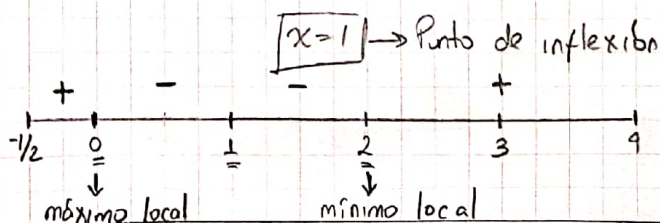 x=1 → Punto de inflexión
+ - - +
-1/2 0 1 2 3 4
↓ ↓
máximo local mínimo local